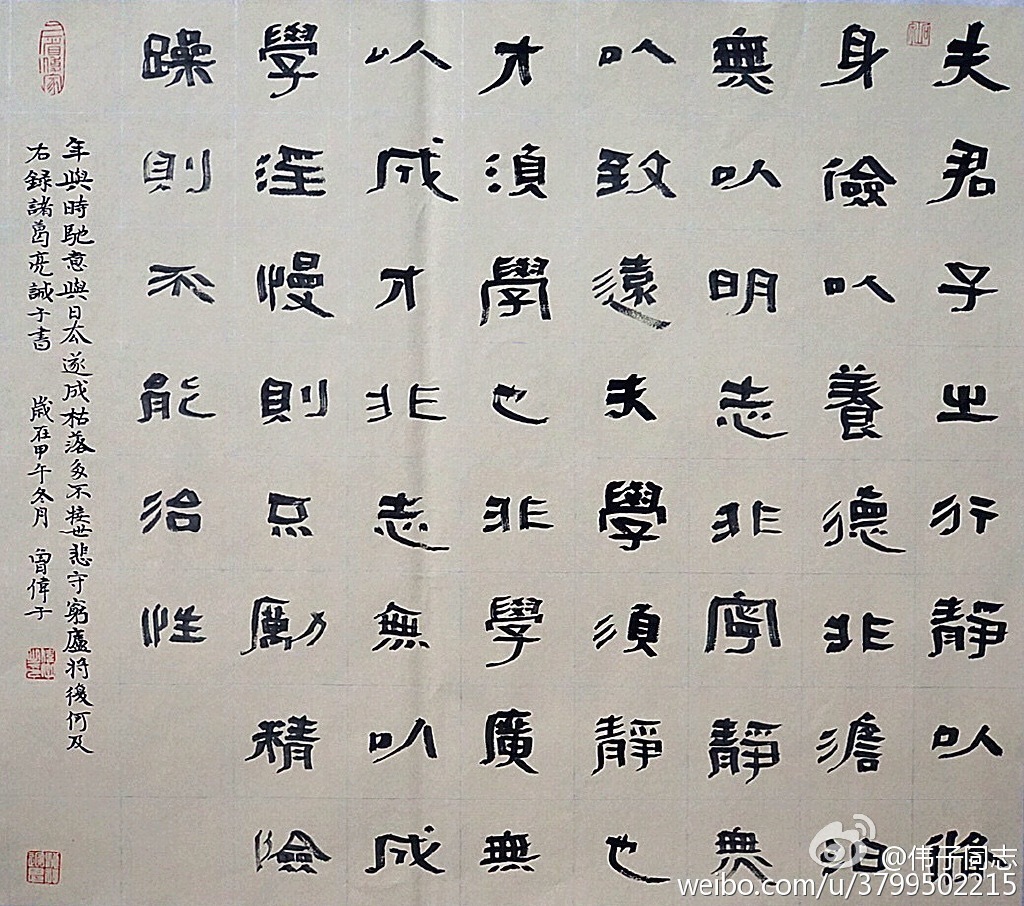 夫君子之行靜以修
身儉以養德非澹泊
無以明志非寧靜無
以致遠夫學須靜也
才須學也非學廣無
以成才非志無以成
學淫慢則勵精險
躁則不能治性
年與時馳意與日去遂成枯落多不接世悲守窮廬將復何及
右録諸葛亮誡子書 歲在甲午冬月 曾偉子
@伟子同志
weibo.com/u/3799502215